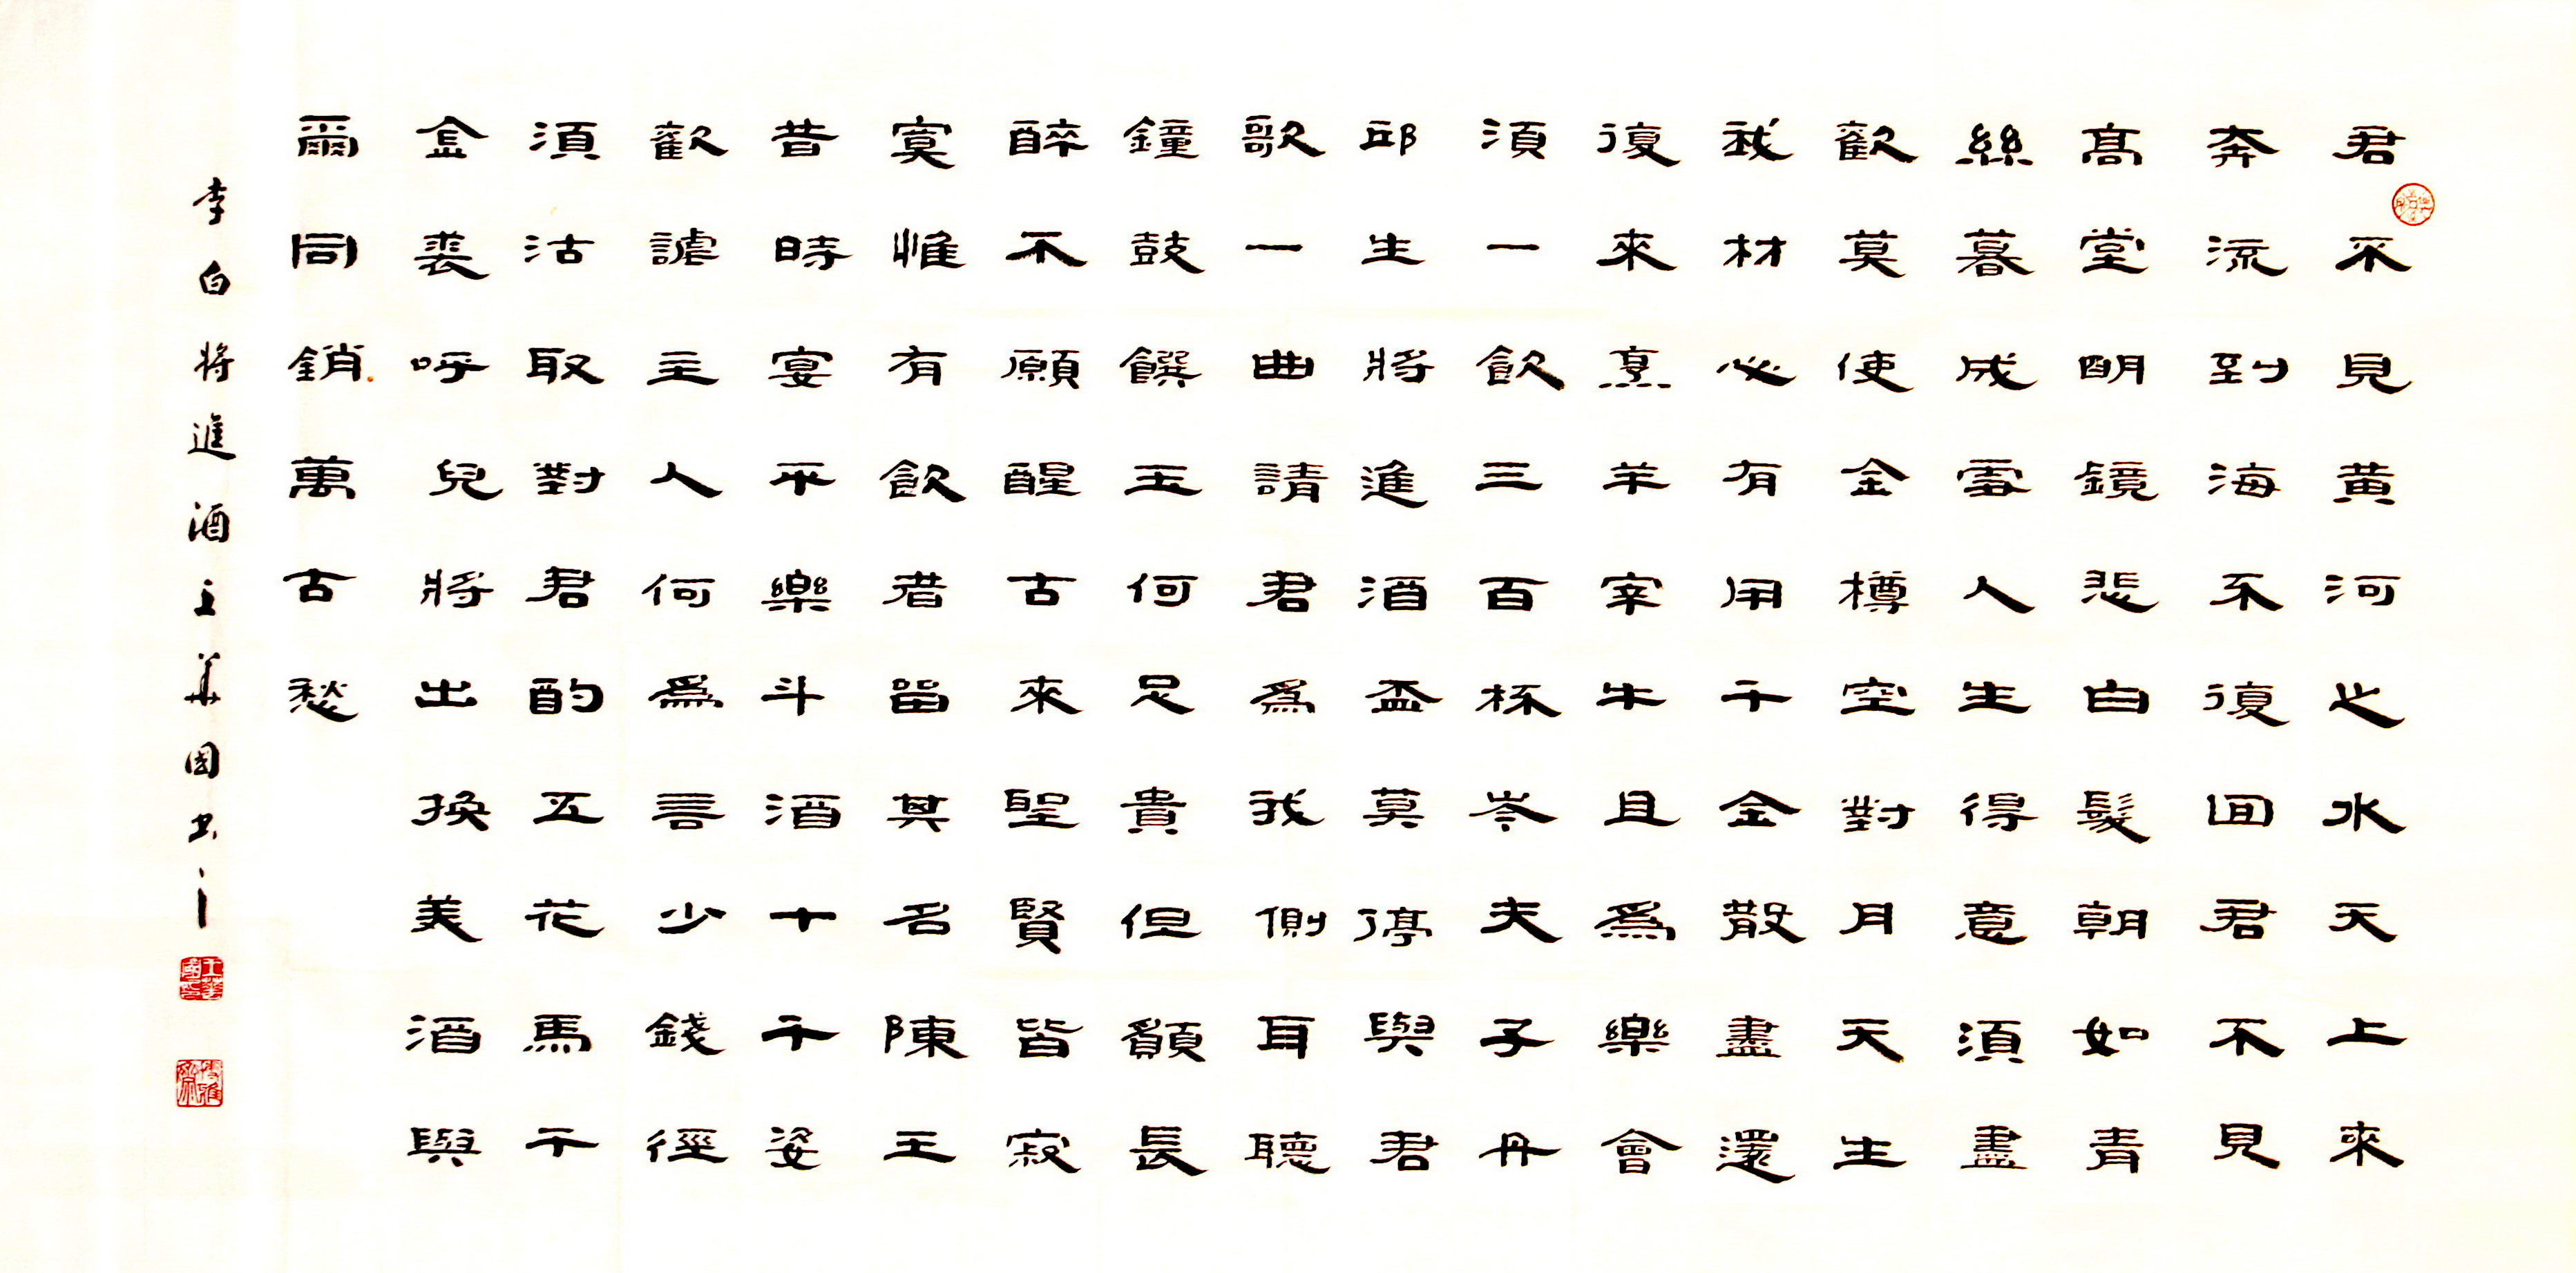 君不見黃河之水天上來
奔流到海不復回君不見
高堂明鏡悲白髮朝如青
絲暮成雪人生得意須盡
歡莫使金樽空對月天生
我材必有用千金散盡還
復來烹羊宰牛且為樂會
須一飲三百杯岑夫子丹
邱生將進酒盃莫停與君
歌一曲請君為我側耳聽
鐘鼓饌玉何足貴但願長
醉不願醒古來聖賢皆寂
寞惟有飲者留其名陳王
昔時宴平樂斗酒十千姿
歡謔主人何為言少錢徑
須沽取對君酌五花馬千
金裘呼兒將出換美酒與
爾同銷萬古愁
李白将進酒王華国书
王華國印